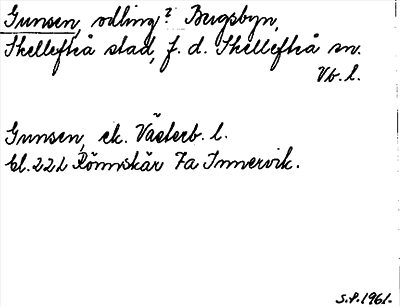 Gunsen, odling? Bugsbyn,
Skellefteå stad, f. d. Skellefteå sn.
Vb. l.
Gunsen, ek. Västerb. l.
Bl. 22L Rönnskär 7a Innervik.
S.F. 1961.